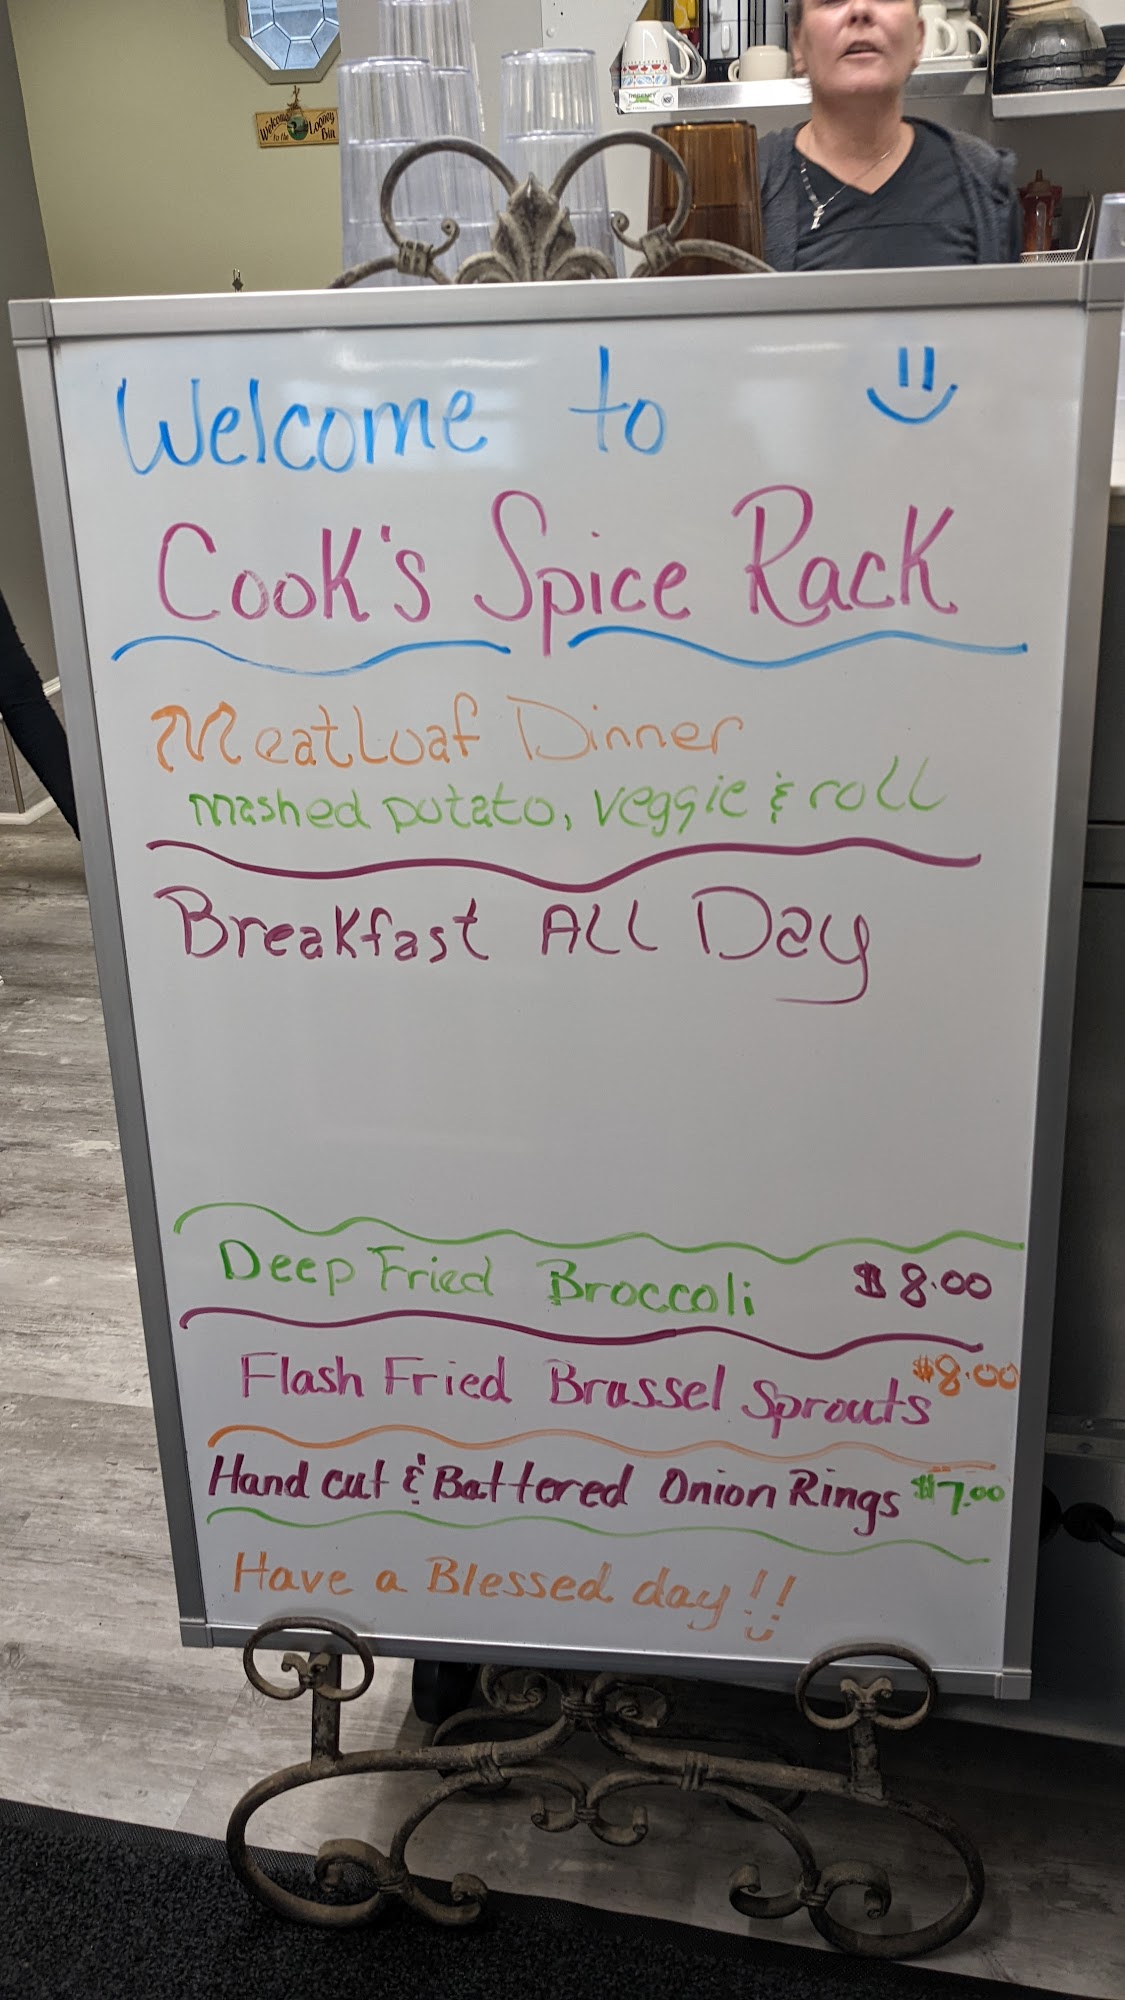 Welcome
to the Looney
Bin
Welcome to
Cook's Spice Rack
Meatloaf Dinner
mashed potato, veggie & roll
Breakfast ALL Day
Deep Fried Broccoli $8.00
Flash Fried Brussel Sprouts $8.00
Hand cut & Battered Onion Rings $7.00
Have a Blessed day!!